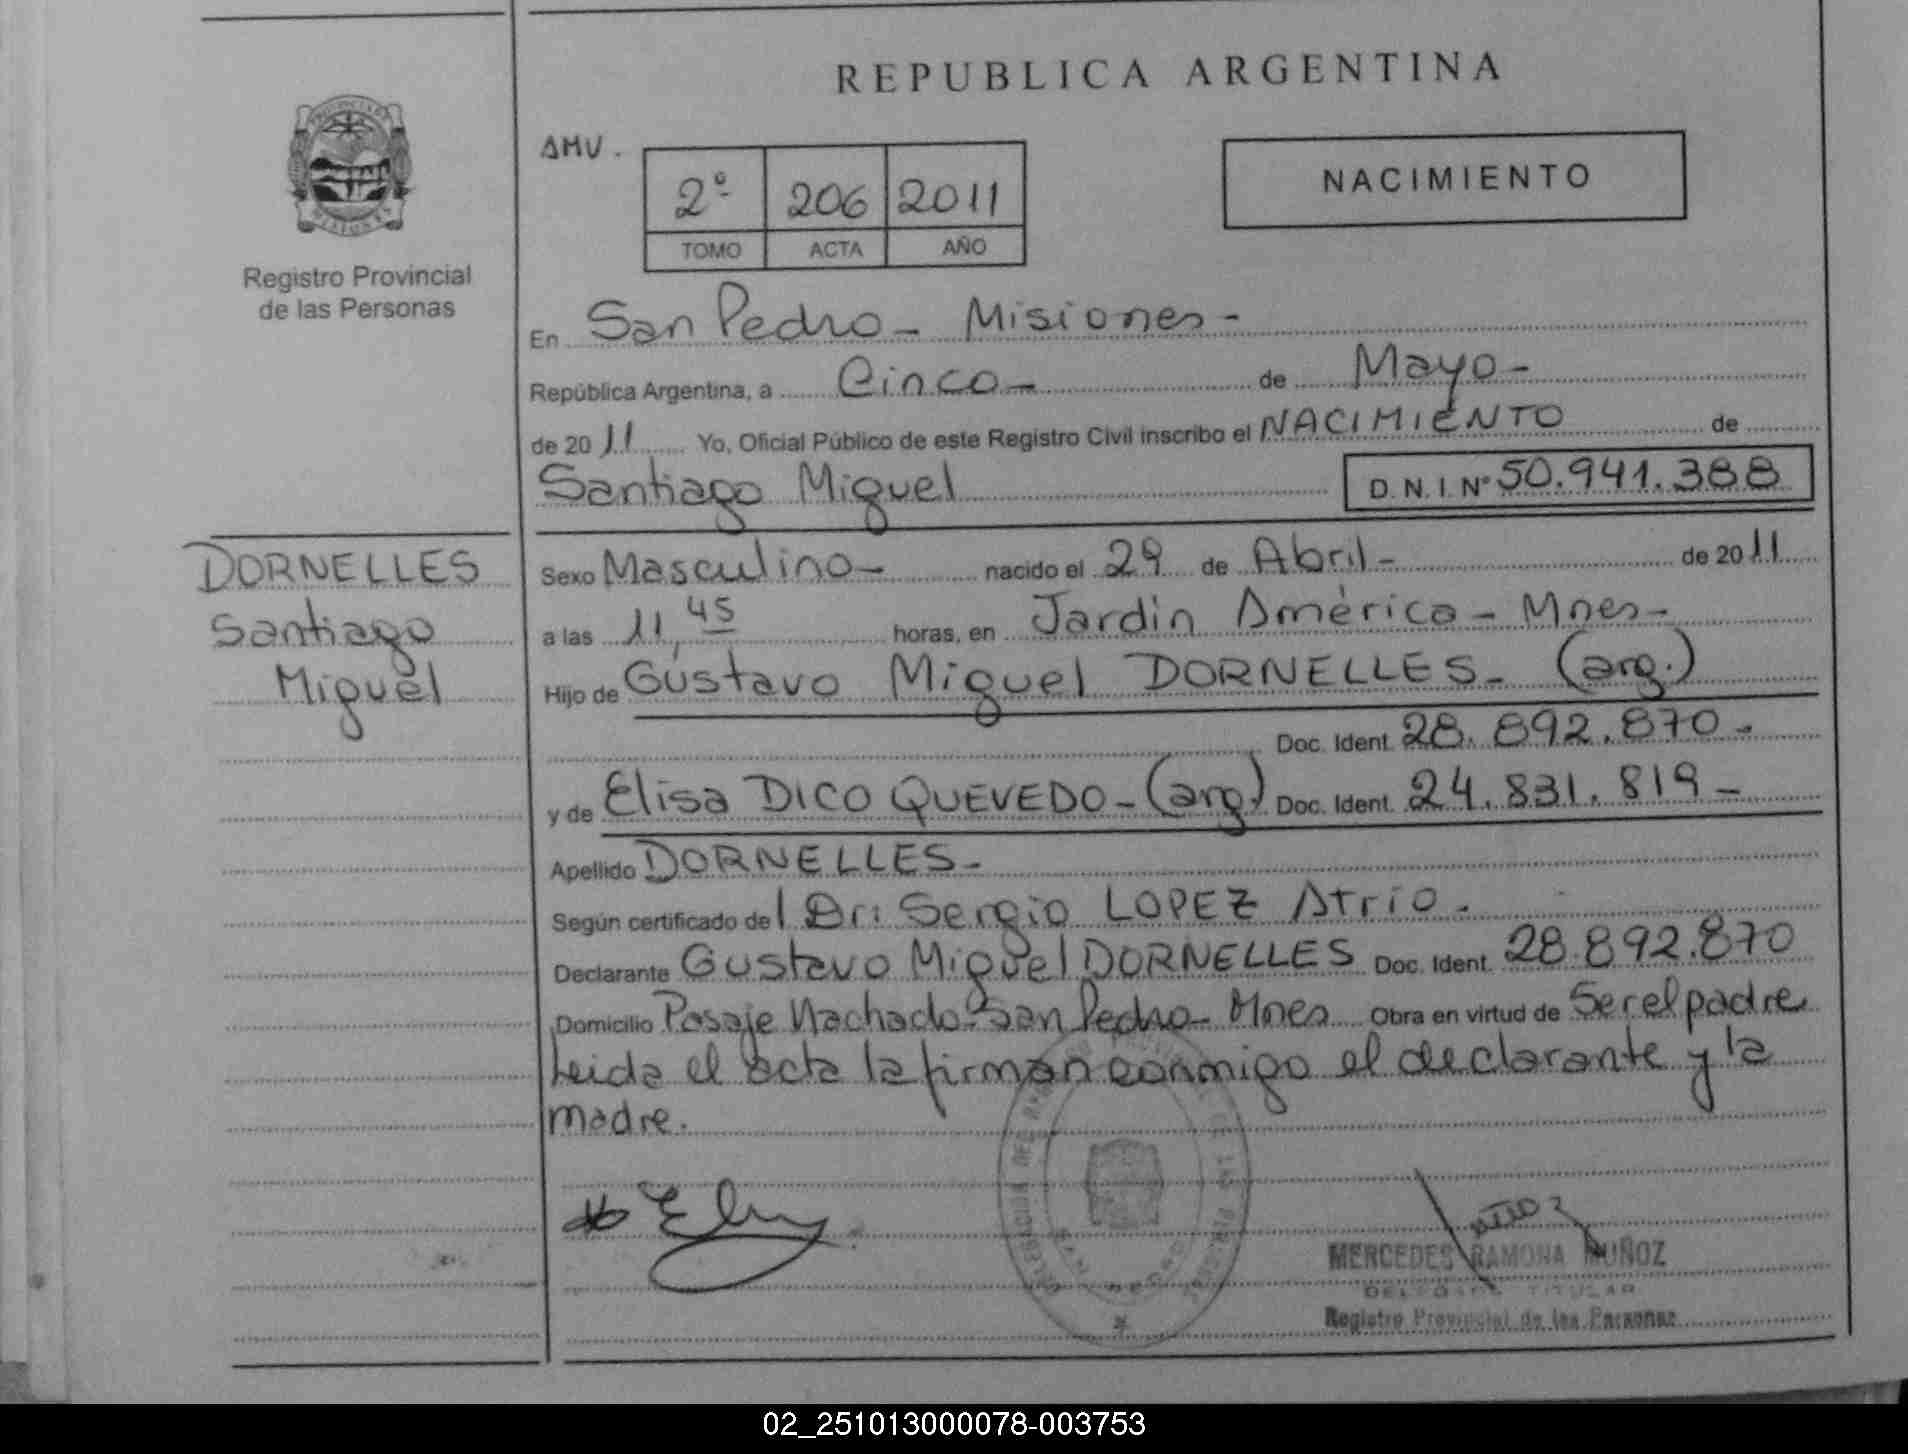 REPUBLICA ARGENTINA
AMV.
2º 206 2011
TOMO ACTA AÑO
NACIMIENTO
PROVINCIA DE
MISIONES
Registro Provincial
de las Personas
En San Pedro - Misiones -
República Argentina, a Cinco - de Mayo -
de 20 11 Yo, Oficial Público de este Registro Civil inscribo el NACIMIENTO de
Santiago Miguel D.N.I. Nº 50.941.388
DORNELLES
Santiago
Miguel
Sexo Masculino - nacido el 29 de Abril - de 20 11
a las 11,45 horas, en Jardin América - Mnes -
Hijo de Gustavo Miguel DORNELLES - (arg.)
Doc. Ident. 28.892.870 -
y de Elisa DICO QUEVEDO - (arg) Doc. Ident. 24.831.819 -
Apellido DORNELLES -
Según certificado del Dr: Sergio LOPEZ Atrio -
Declarante Gustavo Miguel DORNELLES Doc. Ident. 28.892.870
Domicilio Pasaje Machado - San Pedro - Mnes Obra en virtud de Ser el padre
Leida el acta la firman conmigo el declarante y la
madre.
MERCEDES RAMONA MUÑOZ
DELEGADA TITULAR
Registro Provincial de las Personas
02_251013000078-003753